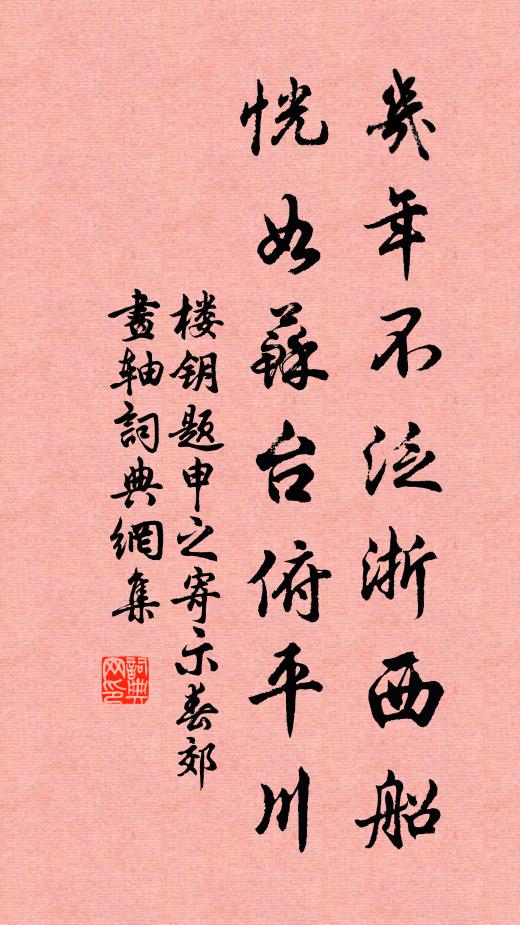 幾年不泛浙西船
恍如蘇台俯平川
楼钥题申之寄示春郊
畫轴詞典網集
詞典网印